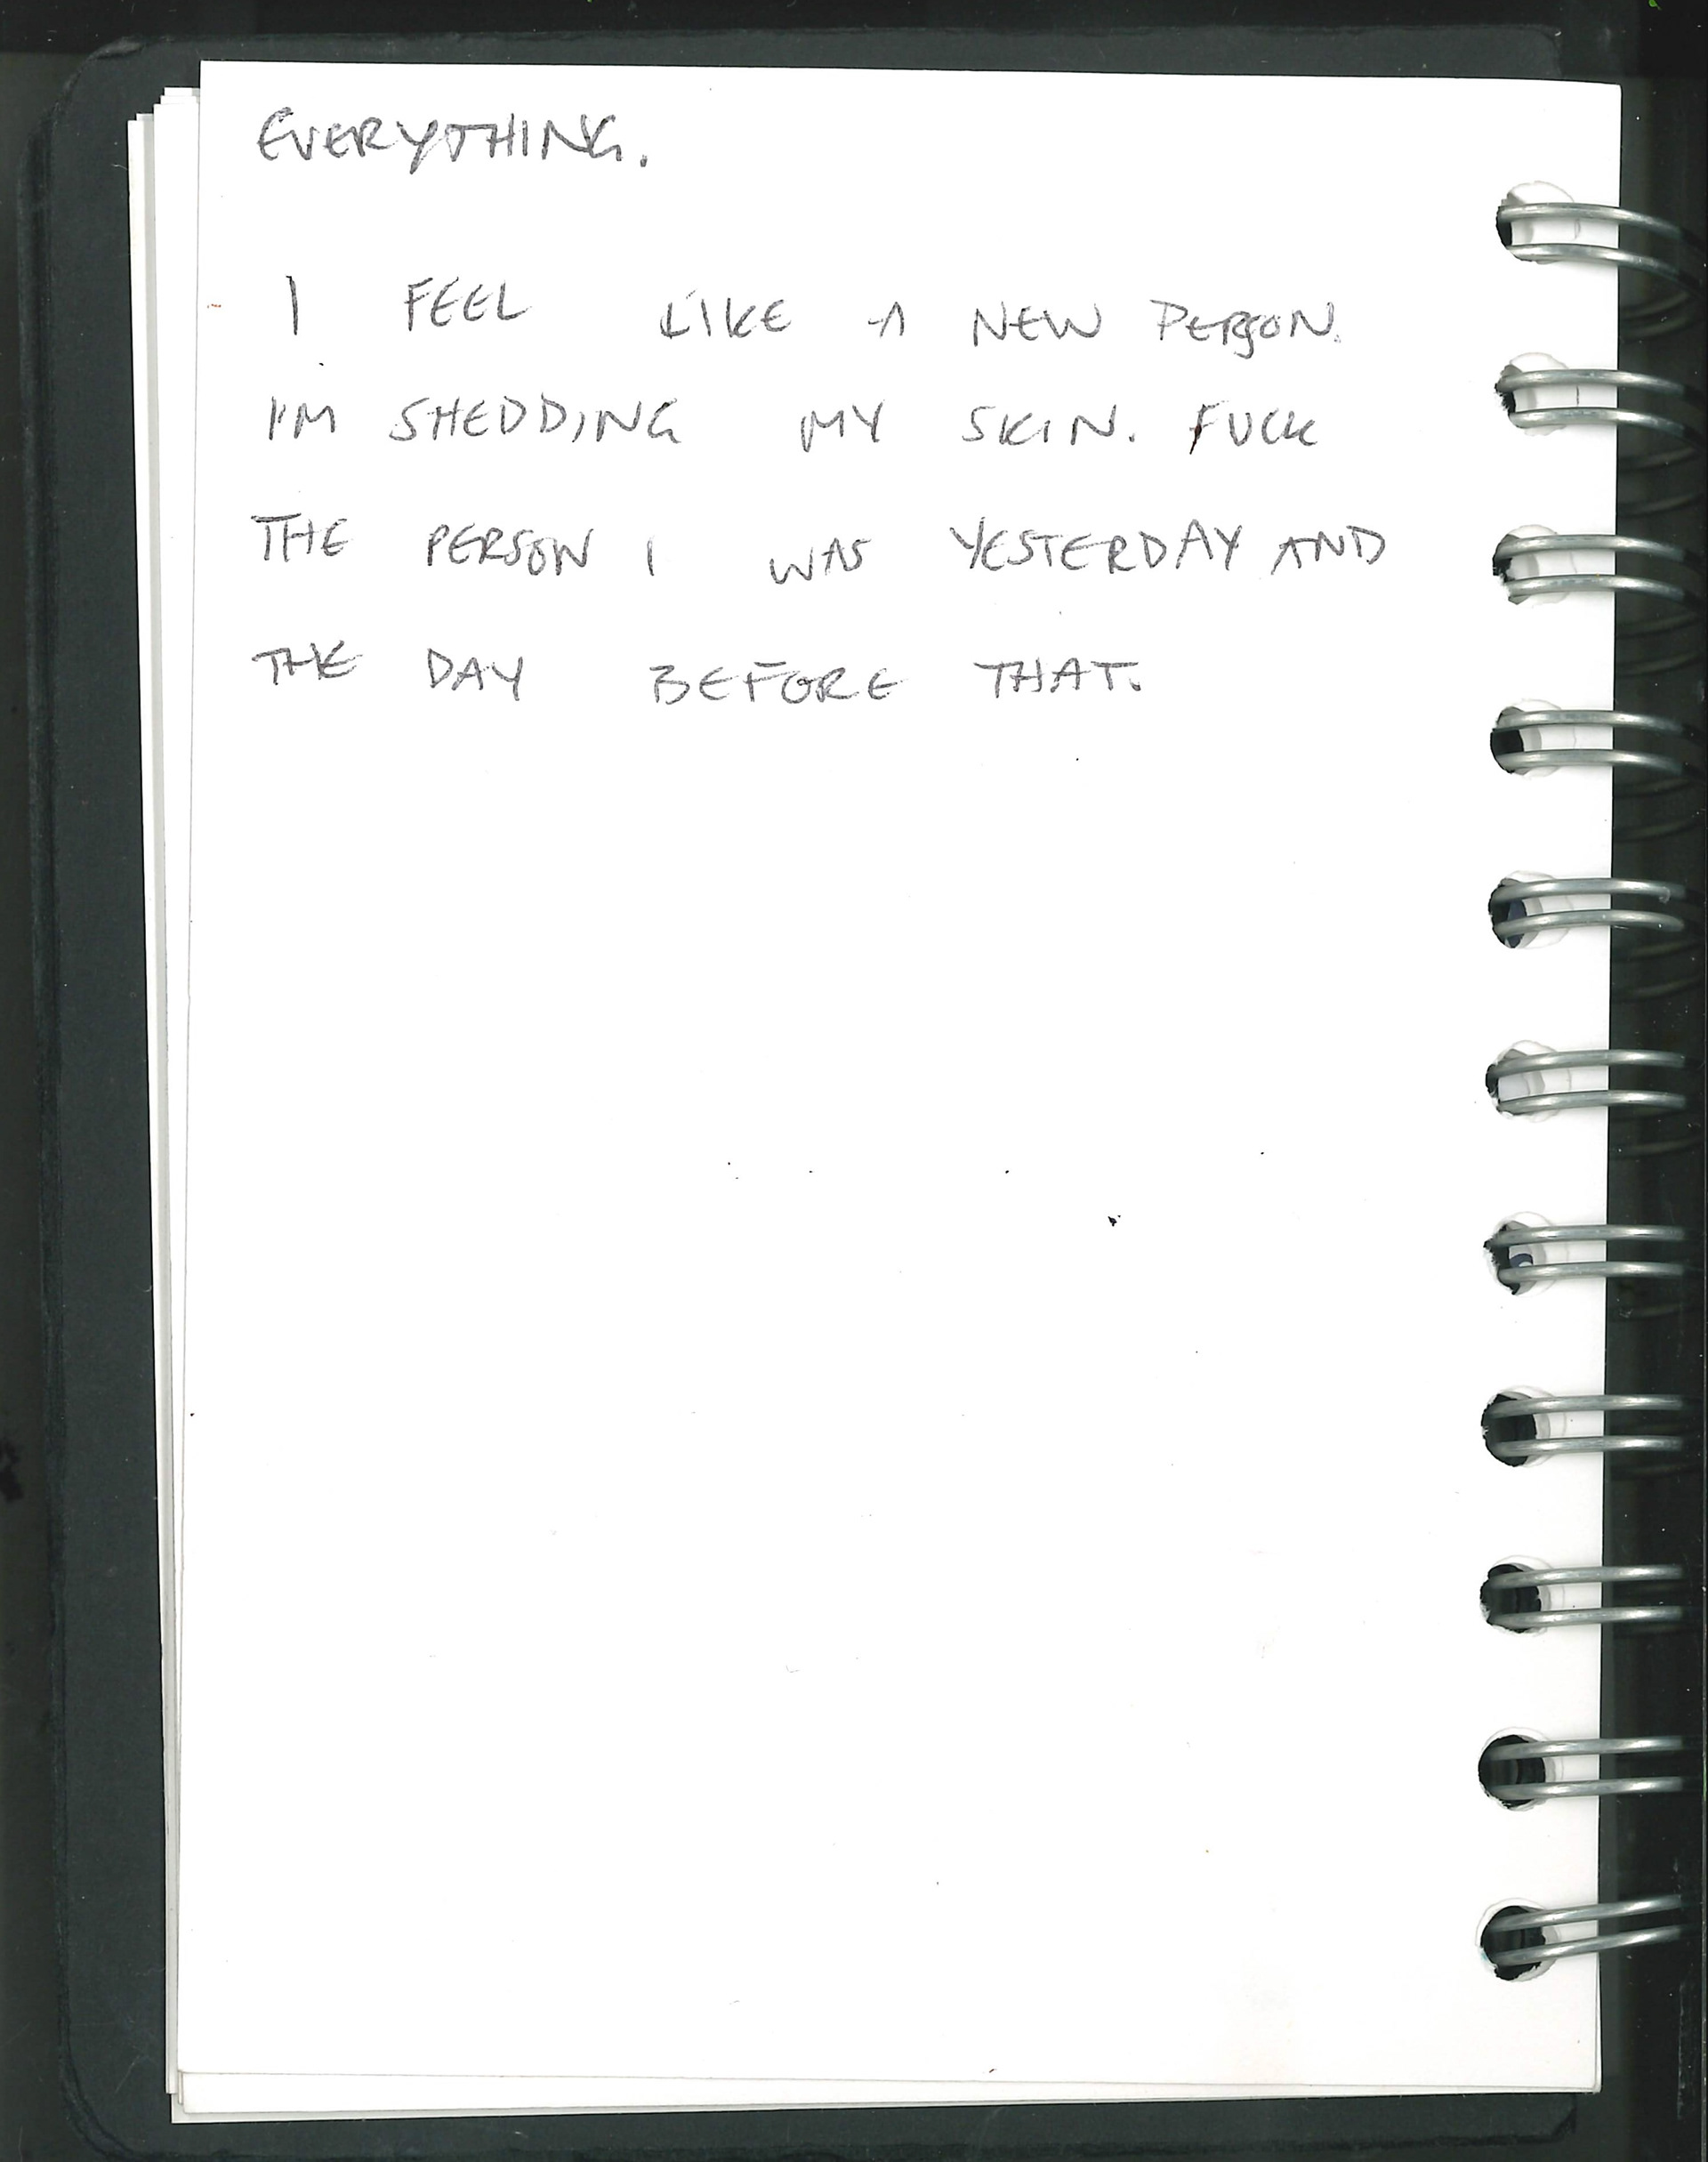 EVERYTHING.
I FEEL LIKE A NEW PERSON.
I'M SHEDDING MY SKIN. FUCK
THE PERSON I WAS YESTERDAY AND
THE DAY BEFORE THAT.